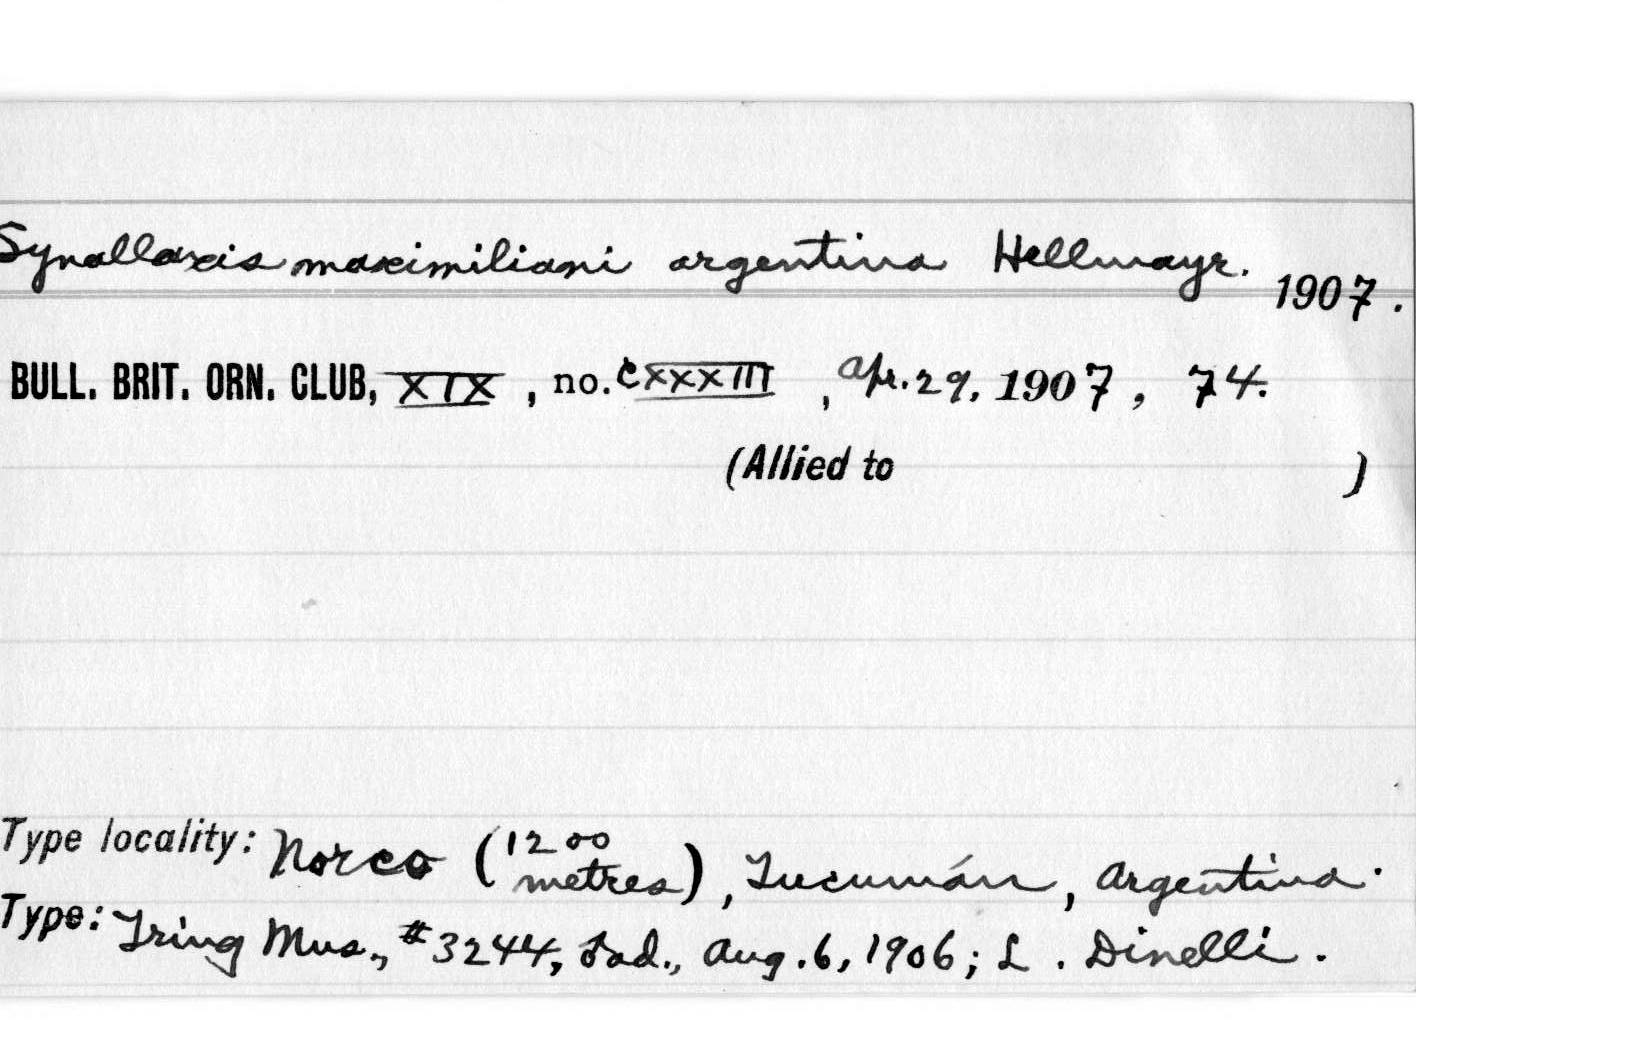 Synallaxis maximiliani argentina Hellmayr. 1907.
BULL. BRIT. ORN. CLUB, XIX, no. CXXXIII, Apr. 29, 1907, 74.
(Allied to )
Type locality: Norco (1200 metres), Tucumán, Argentina.
Type: Tring Mus., #3244, ad., Aug. 6, 1906; L. Dinelli.